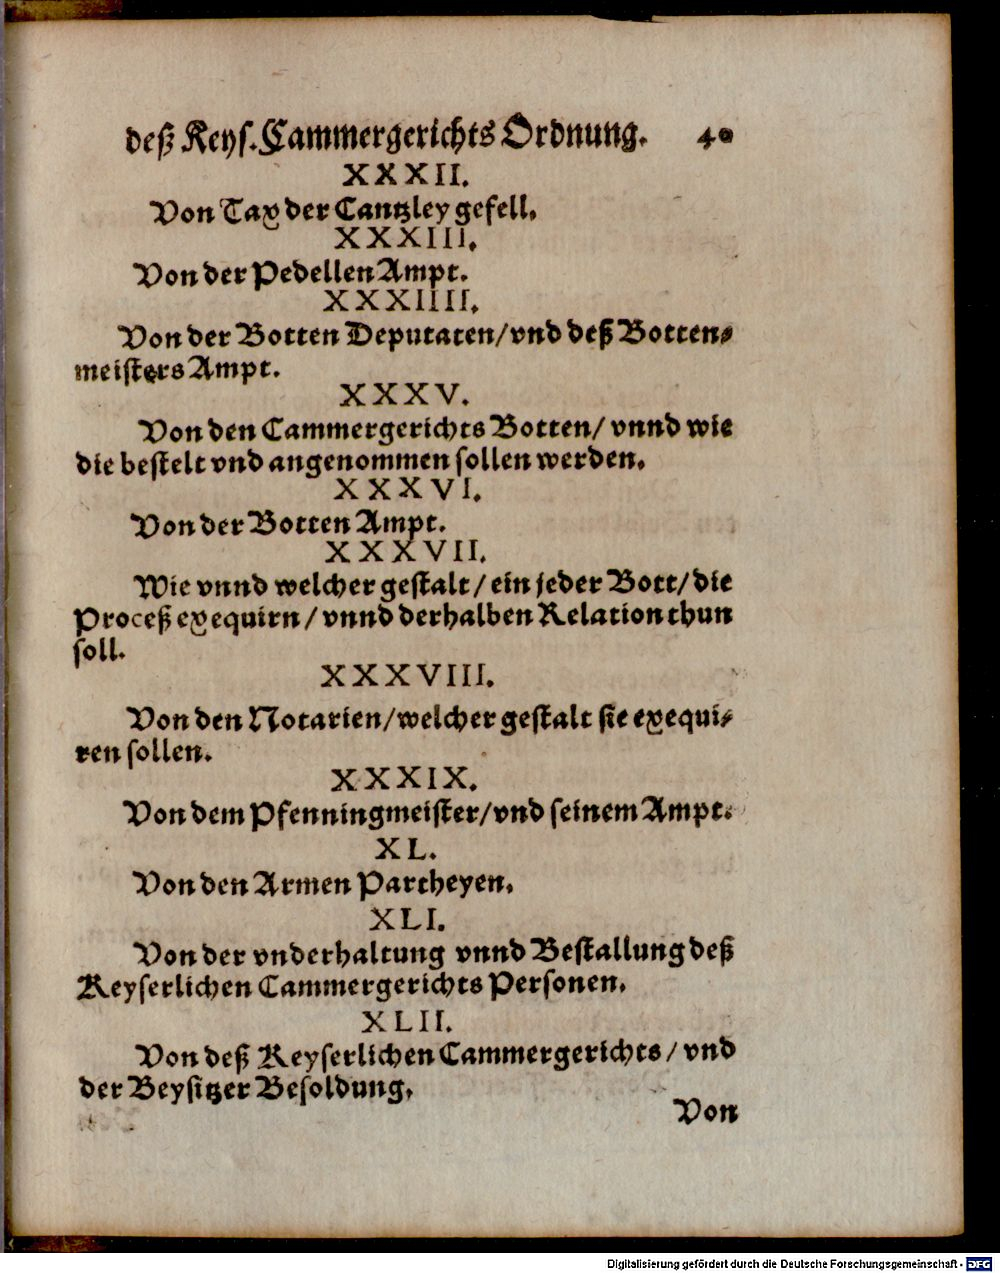 deß Keys. Cammergerichts Ordnung. 40
XXXII.
Von Tax der Cantzley gefell.
XXXIII.
Von der Pedellen Ampt.
XXXIIII.
Von der Botten Deputaten/vnd deß Botten-
meisters Ampt.
XXXV.
Von den Cammergerichts Botten/ vnnd wie
die bestelt vnd angenommen sollen werden.
XXXVI.
Von der Botten Ampt.
XXXVII.
Wie vnnd welcher gestalt/ ein jeder Bott/ die
Proceß exequirn/ vnnd derhalben Relation thun
soll.
XXXVIII.
Von den Notarien/welcher gestalt sie exequi-
ren sollen.
XXXIX.
Von dem Pfenningmeister/vnd seinem Ampt.
XL.
Von den Armen Partheyen.
XLI.
Von der vnderhaltung vnnd Bestallung deß
Keyserlichen Cammergerichts Personen.
XLII.
Von deß Keyserlichen Cammergerichts/ vnd
der Beysitzer Besoldung.
Von
Digitalisierung gefördert durch die Deutsche Forschungsgemeinschaft - DFG